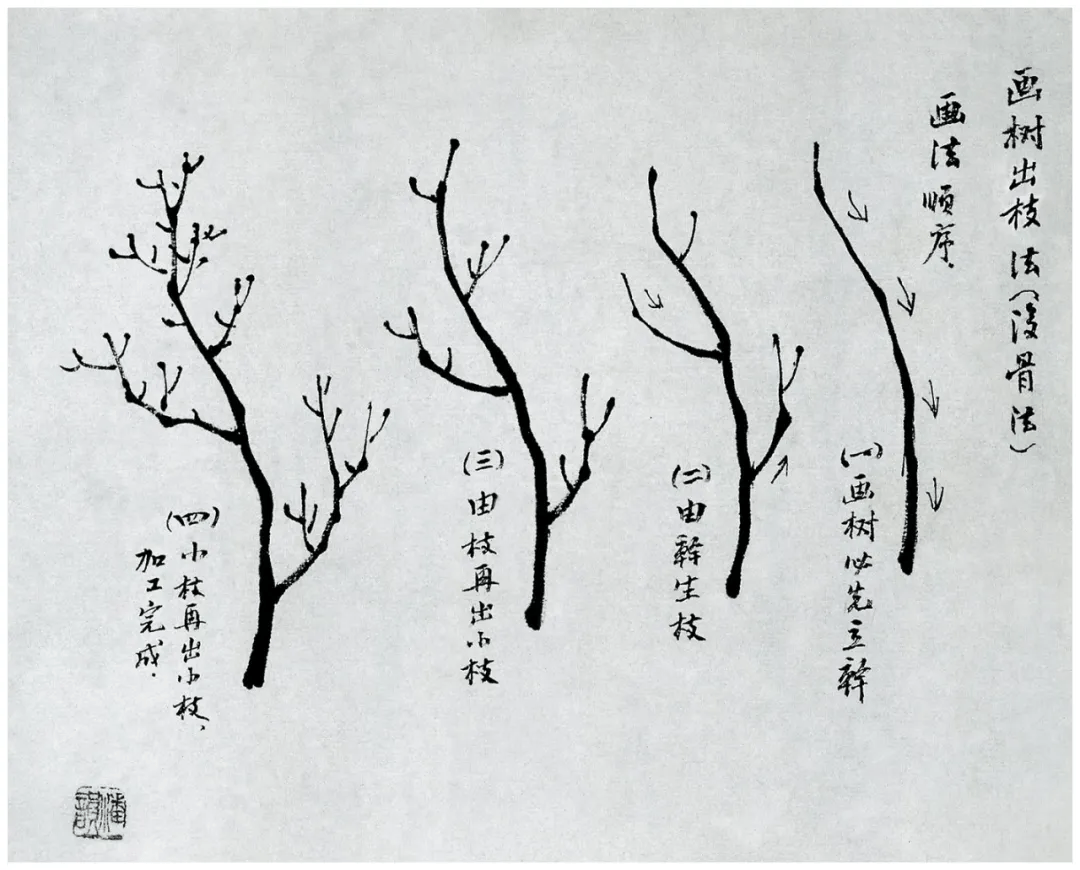 画树出枝法（没骨法）
画法顺序．
（一）画树必先立幹
（二）由幹生枝
（三）由枝再出小枝
（四）小枝再出小枝、
加工完成．
潘韻